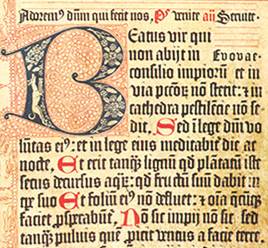 Adorem⁹ dūm qui fecit nos, p̄s Venite añ Seruite.
Beatus vir qui
non abijt in Evovae
consilio impiorū et in
via pctōꝝ nō stetit: ⁊ in
cathedra pestilēcie nō se-
dit. Sed ī lege dnī vo-
lūtas ei⁹: et in lege eius meditabit̄ die ac
nocte. Et erit tanq̄ lignū qd̓ plātatū ist
secus decursus aq̄ꝝ: qd̓ fructū suū dabit ī
tpe suo Et foliū ei⁹ nō defluet: ⁊ oīa q̄cūqꝫ
faciet ꝓsꝑabūt̄. Nō sic impij nō sic: sed
tanq̄ puluis quē ꝓicit ventus a facie terre.